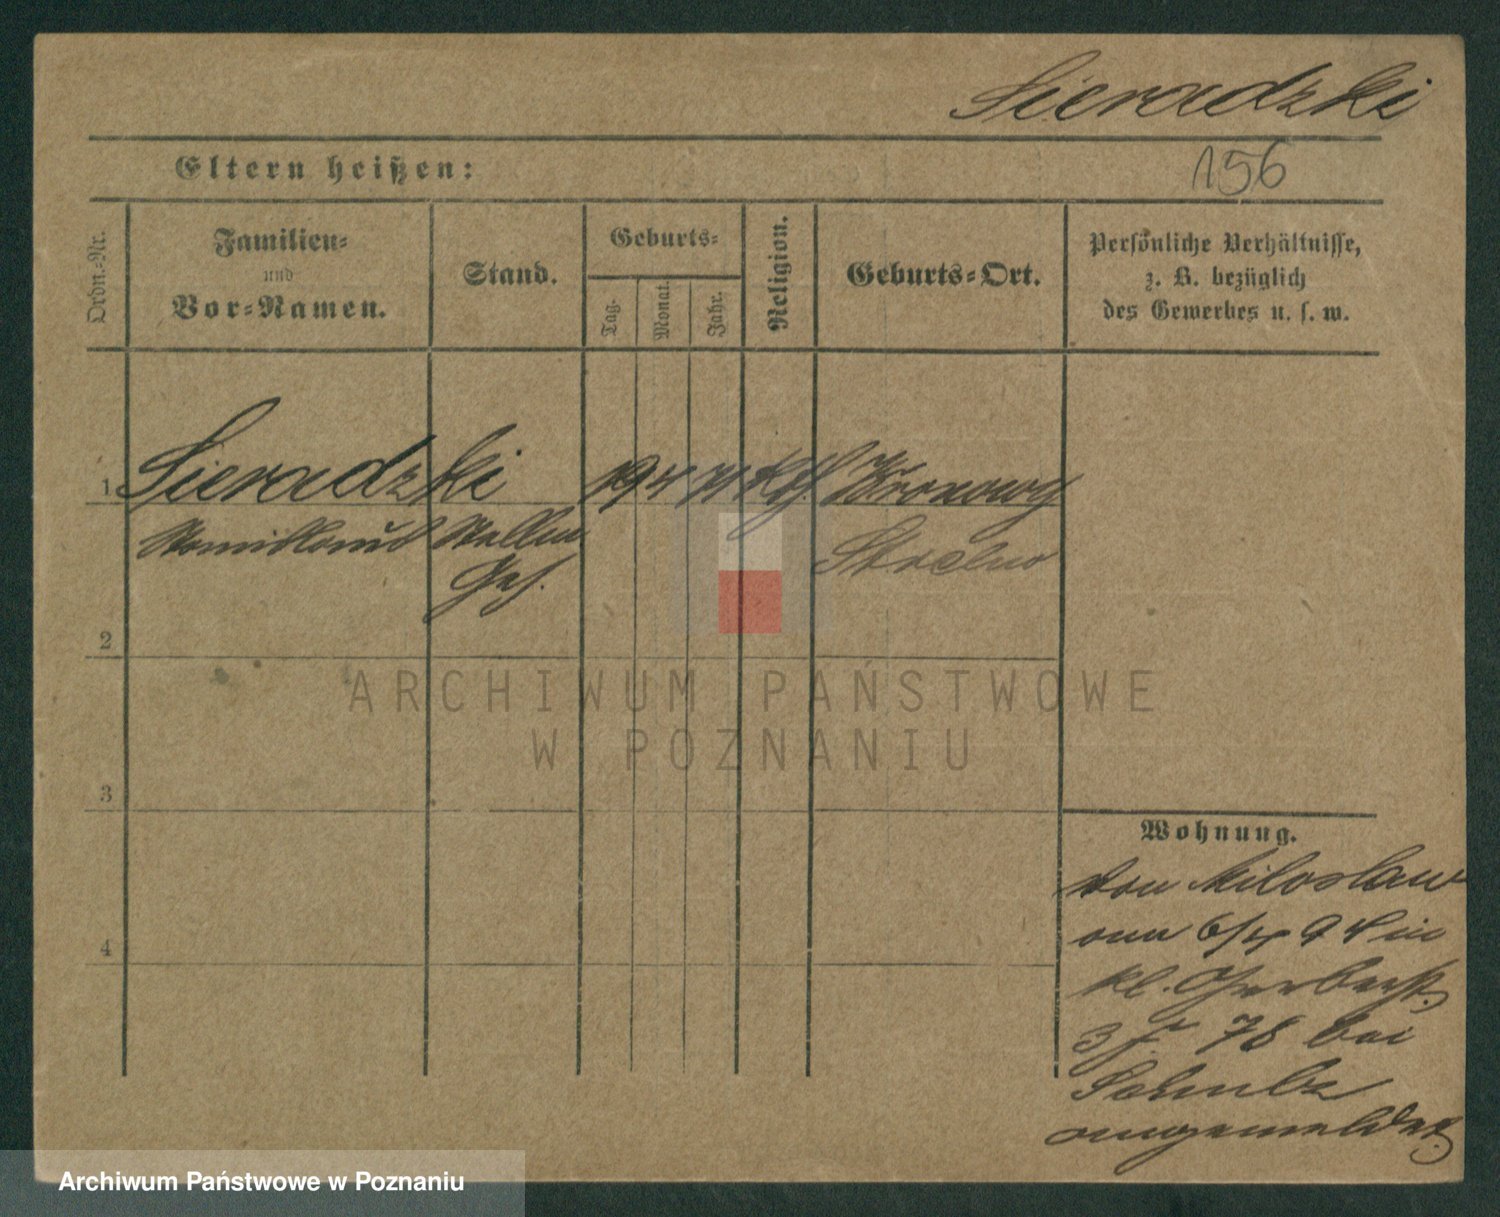 Sieradzki
Eltern heißen:
156
Ordn.-Nr.
Familien-
und
Vor-Namen.
Stand.
Geburts-
Tag.
Monat.
Jahr.
Religion.
Geburts-Ort.
Persönliche Verhältnisse,
z. B. bezüglich
des Gewerbes u. s. w.
1 Sieradzki 19 4 71 Kth.
Stanislaus Stellm.
Strelno
Ges.
2
3
4
ARCHIWUM PAŃSTWOWE
W POZNANIU
Wohnung.
von Miloslaw
am 6/4 94 in
kl. Gerberst.
bei
Schulz
angemeldet.
Archiwum Państwowe w Poznaniu